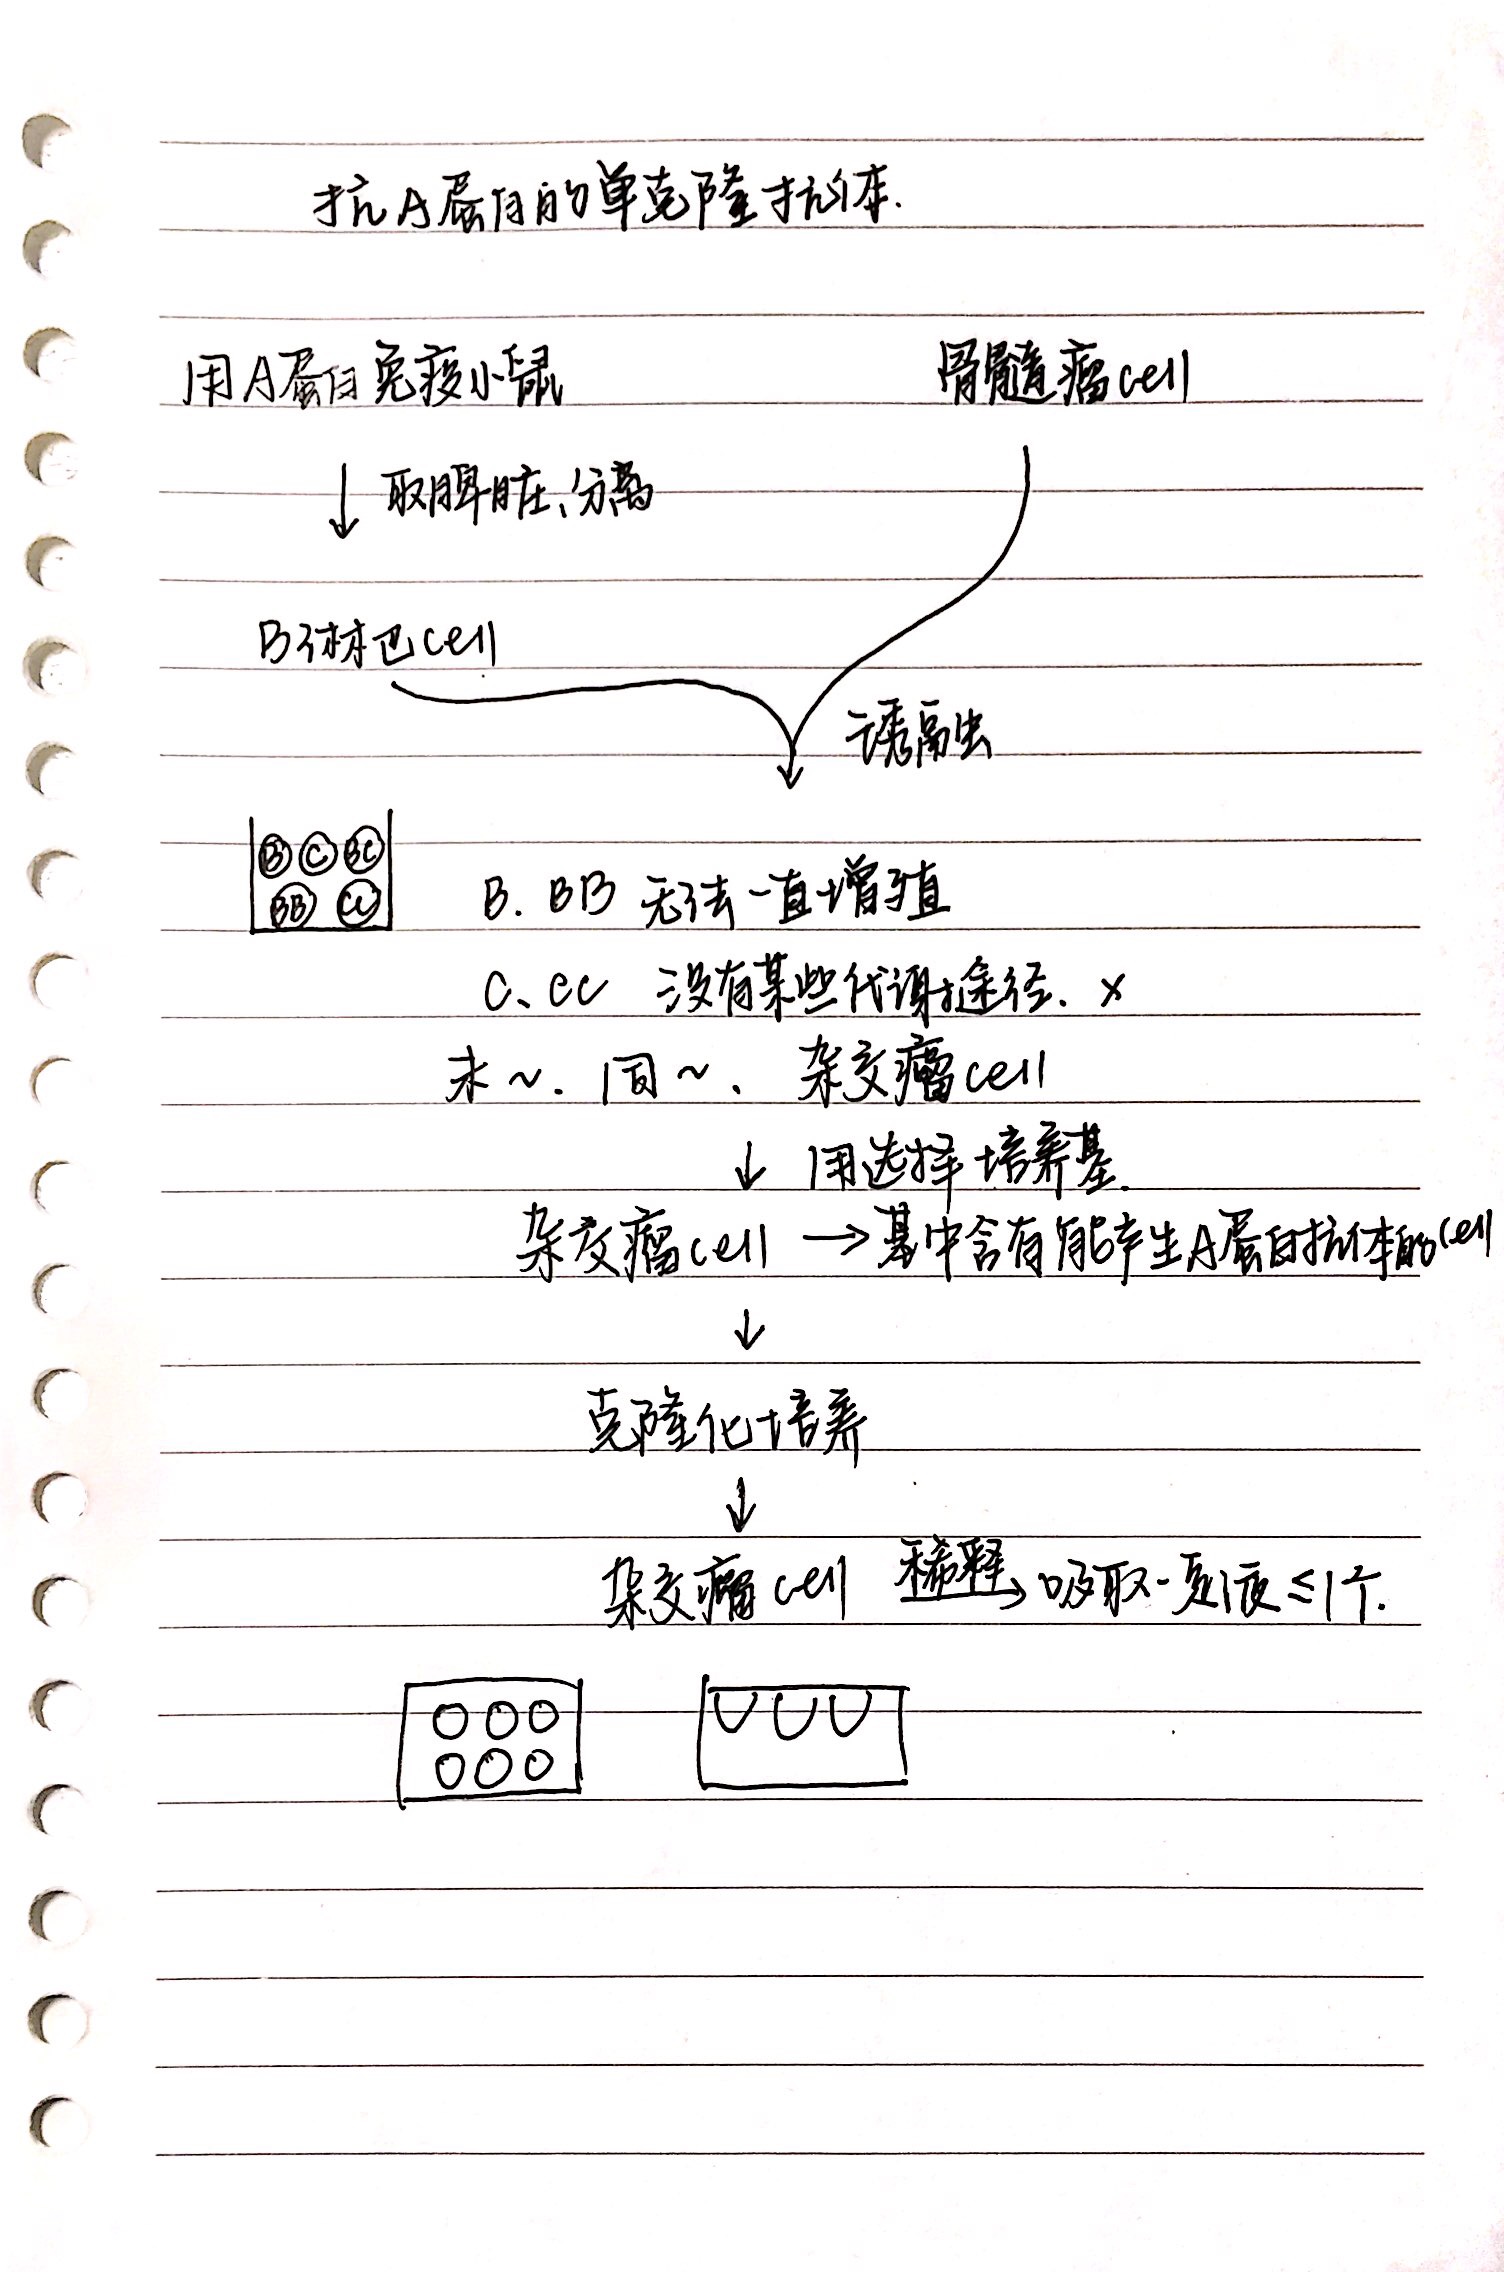 抗A蛋白的单克隆抗体.
用A蛋白免疫小鼠 骨髓瘤cell
↓ 取脾脏、分离
B淋巴cell
诱融
B C BC
BB CC
B. BB 无法一直增殖
C、CC 没有某些代谢途径. ×
未~. 同~、 杂交瘤cell
↓ 用选择培养基.
杂交瘤cell → 其中含有能产生A蛋白抗体的cell
↓
克隆化培养
↓
杂交瘤cell 稀释→ 吸取一滴液≤1个.